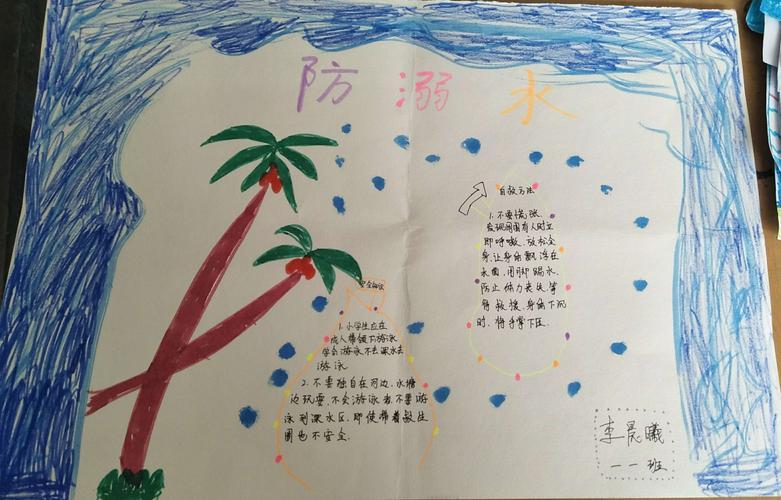 防溺水
自救方法
1.不要慌张,
发现周围有人时立
即呼喊,放松全
身,让身体飘浮在
水面,用脚踢水,
防止体力丧失,等
待救援,身体下沉
时,将手掌下压。
1.小学生应在
成人带领下游泳
学会游泳不去深水去
游泳
2.不要独自在河边,水塘
边玩耍,不会游泳者不要游
泳到深水区,即使带着救生
圈也不安全.
李晨曦
一一班